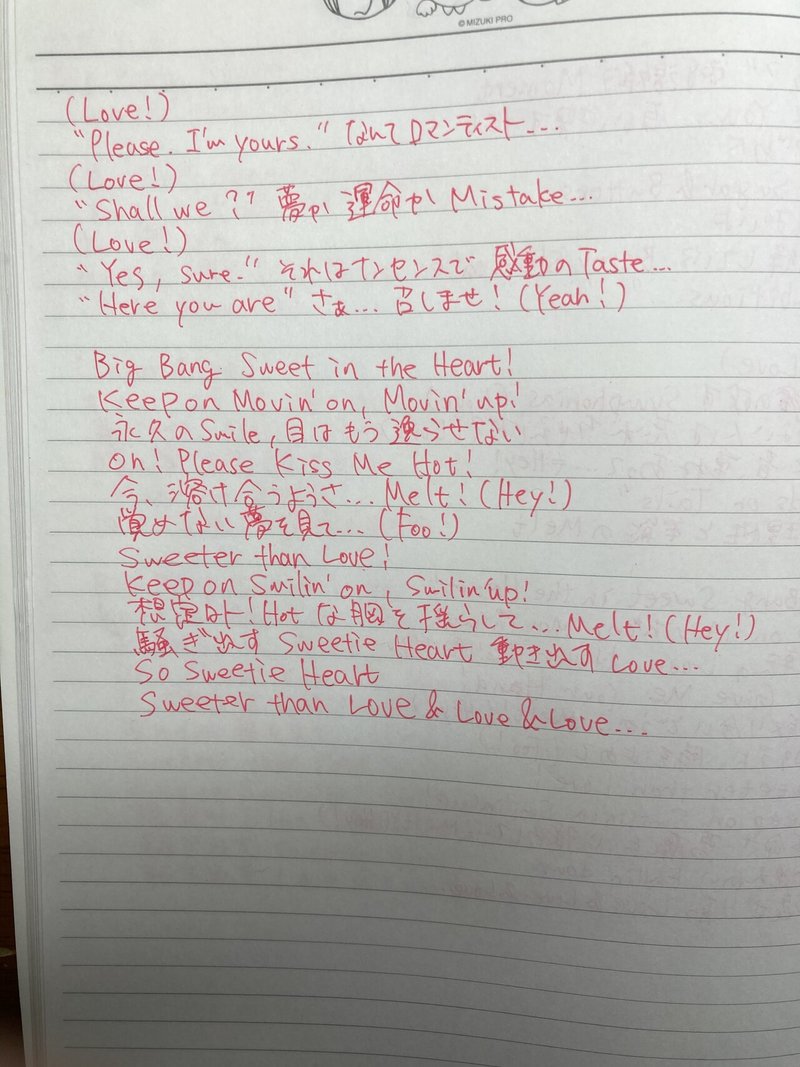 ©MIZUKI PRO
(Love!)
"Please. I'm yours." なんてロマンティスト...
(Love!)
"Shall we?" 夢か運命か Mistake...
(Love!)
"Yes, sure." それはナンセンスで 感動のTaste...
"Here you are" さぁ... 召しませ! (Yeah!)
Big Bang Sweet in the Heart!
Keep on Movin' on, Movin' up!
永久のSmile, 目はもう逸らせない
Oh! Please Kiss Me Hot!
今、溶け合うようさ... Melt! (Hey!)
覚めない夢を見て... (Foo!)
Sweeter than Love!
Keep on Smilin' on, Smilin' up!
想定外! Hotな胸を揺らして... Melt! (Hey!)
騒ぎ出す Sweetie Heart 動き出す Love...
So Sweetie Heart
Sweeter than Love & Love & Love...